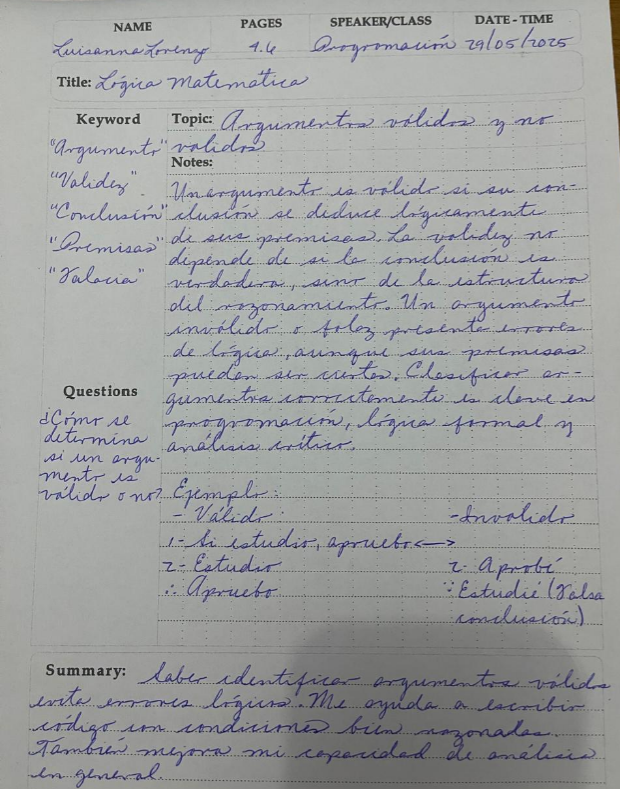 NAME PAGES SPEAKER/CLASS DATE-TIME
Luisanna Lorenzo 4.6 Programación 29/05/2025
Title: Lógica Matemática
Keyword
"Argumento"
"Validez"
"Conclusión"
"Premisas"
"Falacia"
Questions
¿Cómo se
determina
si un argu-
mento es
válido o no?
Topic: Argumentos válidos y no
validos
Notes:
Un argumento es válido si su con-
clusión se deduce lógicamente
de sus premisas. La validez no
depende de si la conclusión es
verdadera, sino de la estructura
del razonamiento. Un argumento
inválido o falaz presenta errores
de lógica, aunque sus premisas
puedan ser ciertas. Clasificar ar-
gumentos correctamente es clave en
programación, lógica formal y
análisis crítico.
Ejemplo:
- Válido: -Invalido
1- Si estudio, apruebo <—>
2- Estudio 2- Aprobé
∴ Apruebo ∵ Estudié (Falsa
conclusión)
Summary: Saber identificar argumentos válidos
evita errores lógicos. Me ayuda a escribir
código con condiciones bien razonadas.
También mejora mi capacidad de análisis
en general.